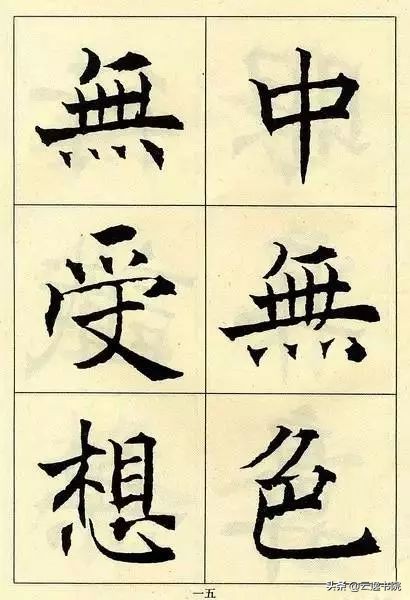 中無色
無受想
一五
头条@云逸书院